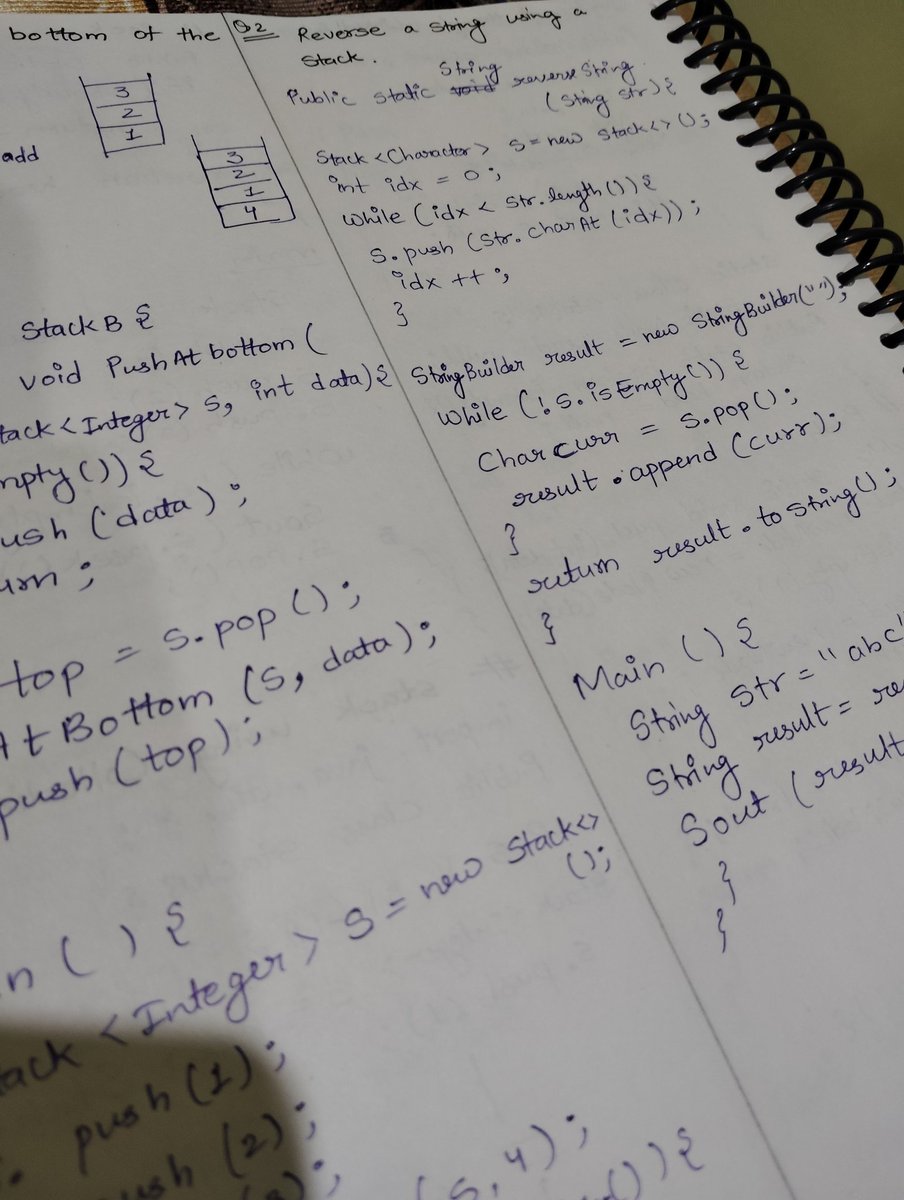 bottom of the
3
2
1
add
3
2
1
4
StackB {
void PushAtbottom (
tack <Integer> s, int data) {
mpty ()) {
ush (data) ;
urn ;
top = s.pop () ;
At Bottom (s, data) ;
push (top) ;
n ( ) {
tack <Integer> s = new Stack<>
();
push (1) ;
ush (2) ;
(s, 4) ;
()) {
Q2 Reverse a string using a
stack.
String
Public static void reverse String
(String str) {
Stack <Character> s = new Stack<> () ;
int idx = 0 ;
while (idx < str.length ()) {
s.push (str.charAt (idx)) ;
idx ++ ;
}
StringBuilder result = new StringBuilder("") ;
while (!s.isEmpty ()) {
Char curr = s.pop () ;
result.append (curr) ;
}
return result.toString () ;
}
Main () {
String str = "abc"
String result = re
Sout (result
}
}